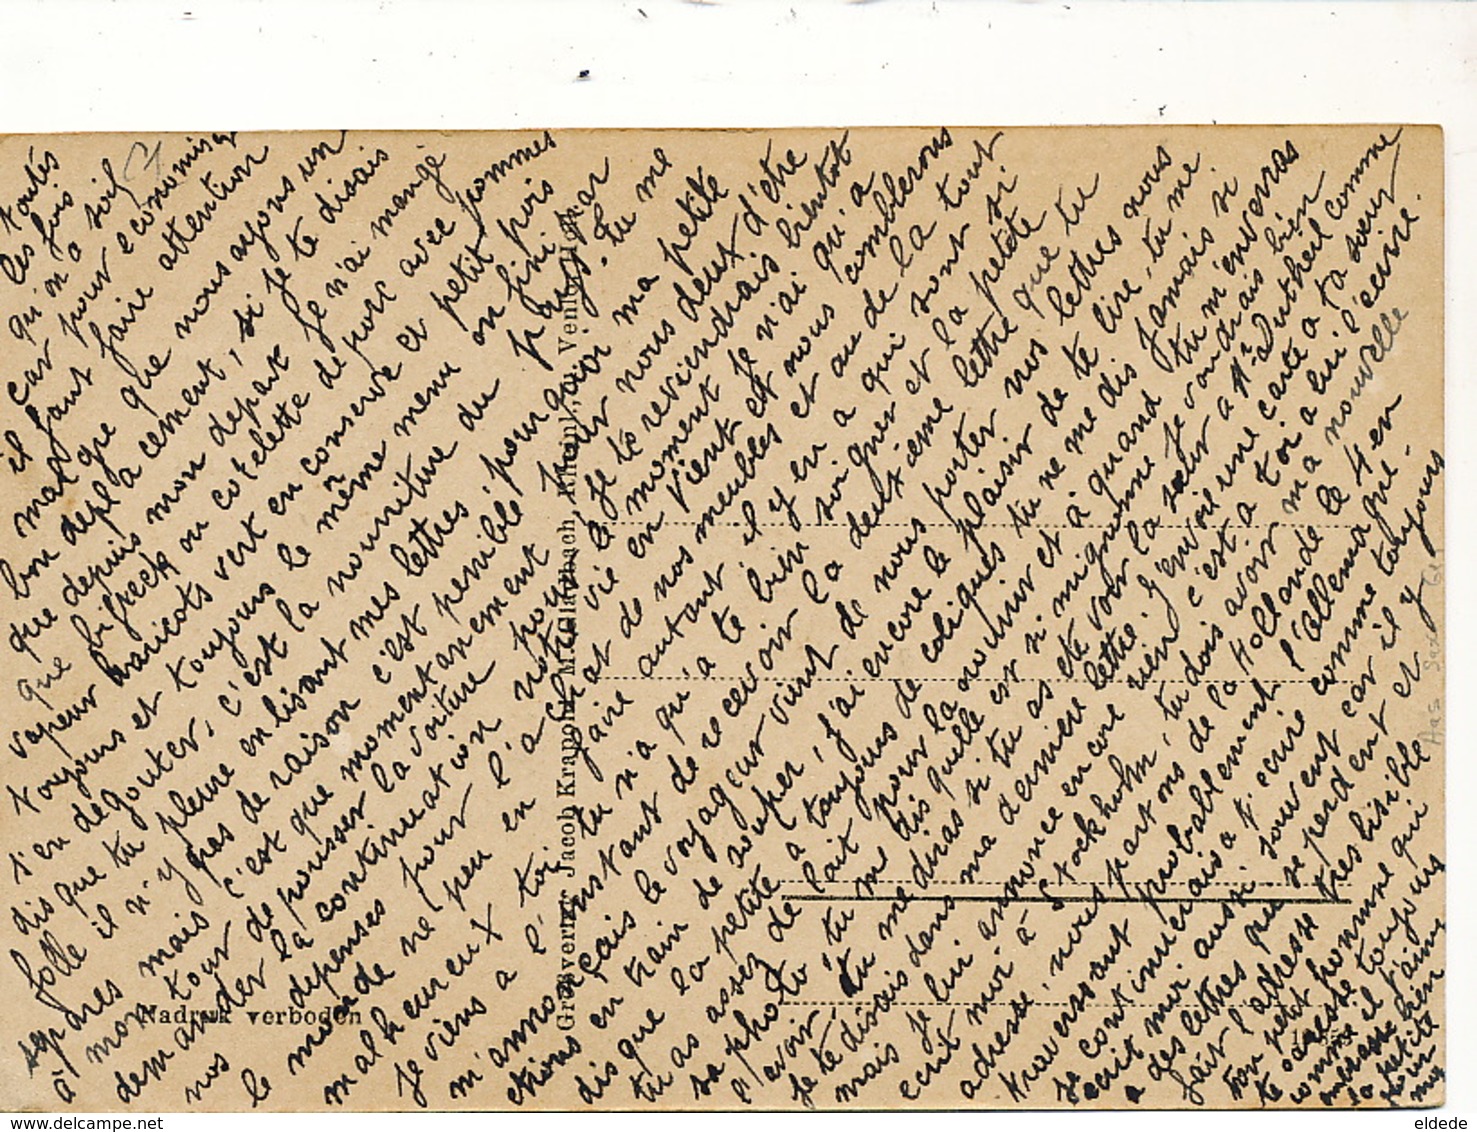 toutes
les fois
qu'm a soif
car pour economiser
il faut faire attention
mais que que nous ayons un
bon deplacement, si je te disais
que depuis mon depart je n'ai mangé
que bifteck ou cotelette de porc avec pommes
vapeur haricots vert en conserve et petit pois
toujours et toujours le même menu on fini par
s'en degouter, c'est la nouriture du pays. Tu me
dis que tu pleure en lisant mes lettres pourquoi ma petite
folle il n'y pas de raison c'est penible pour nous deux d'être
separes mais c'est que momentanement je te reviendrais bientot
à mon tour de pousser la voiture pour le moment je n'ai qu'a
demander la continuation notre vie en vient et nous comblerons
nos depenses pour l'achat de nos meubles et au dela tout
le monde ne peu en faire autant il y en a qui sont si
malheureux toi tu n'a qu'a te bien soigner et la petite
Je viens a l'instant de recevoir la deuxième lettre que tu
m'annonçais le voyageur vient de nous porter nos lettres nous
etions en train de souper, j'ai encore le plaisir de te lire, tu me
dis que la petite a toujours de coliques tu ne me dis jamais si
tu as assez de lait pour la nourrir et à quand tu m'enverras
sa photo tu m dis quelle est si mignonne je voudrais bien
l'avoir, tu me diras si tu as ete voir la sœur a Mme Dutheil comme
je te disais dans ma derniere lettre. J'envoi une carte a ta sœur
mais je lui annonce encore rien c'est a toi a lui l'ecrire.
ecrit moi à Stockholm, tu dois avoir ma nouvelle
adresse, nous partons de la Hollande le 4 en
traversant probablement l'Allemagne.
je continuerais a t'ecrire comme toujours
ecrit moi aussi souvent car il y
a des lettres qui se perdent et
fait l'adresse tres lisible
ton petit homme qui
te caresse toujours
comme il t'aime
embrasse bien
la petite
pour
moi
Nadruk verboden